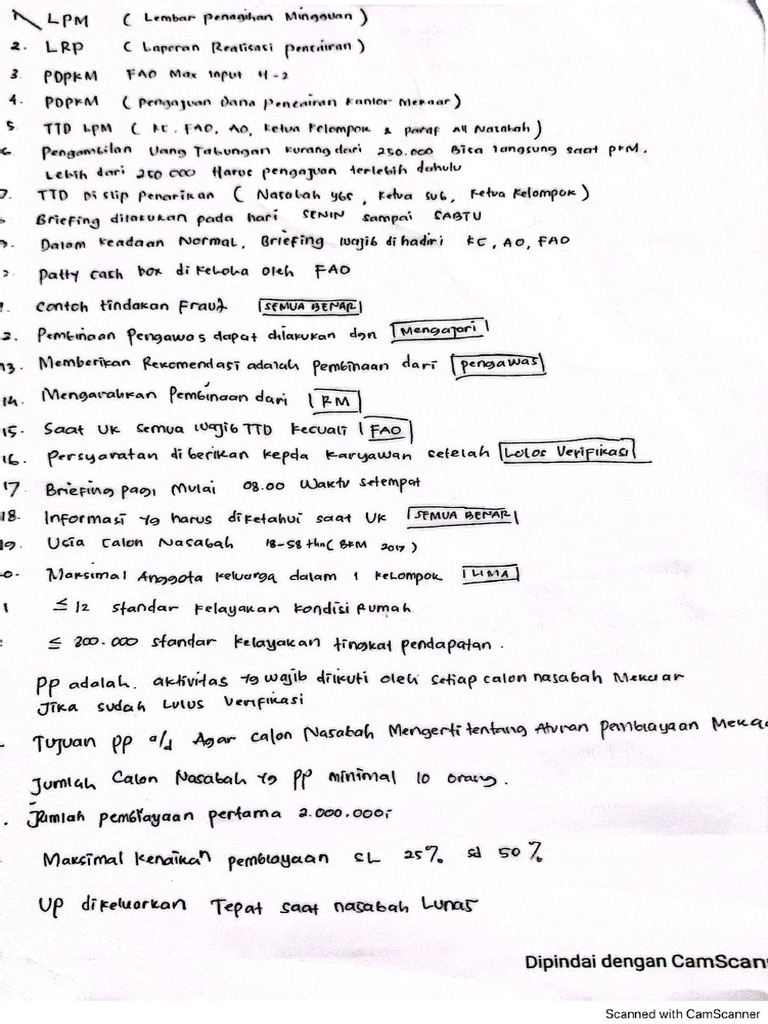 1. LPM ( Lembar Penagihan Mingguan )
2. LRP ( Laporan Realisasi pencairan )
3 PDPKM FAO Max Input H-2
4. PDPKM ( Pengajuan Dana Pencairan Kantor Mekaar )
5 TTD LPM ( KC. FAO, AO, Ketua Kelompok & paraf All Nasabah )
6 Pengambilan Uang Tabungan kurang dari 250.000 Bisa langsung saat PKM.
Lebih dari 250 000 Harus pengajuan terlebih dahulu
7. TTD Di slip Penarikan ( Nasabah ybs, Ketua sub, Ketua Kelompok )
Briefing dilakukan pada hari SENIN sampai SABTU
9. Dalam Keadaan Normal, Briefing wajib di hadiri KC, AO, FAO
Patty cash box di Kelola oleh FAO
1. Contoh tindakan Fraud SEMUA BENAR
2. Pembinaan Pengawas dapat dilakukan dgn Mengajari
13. Memberikan Rekomendasi adalah Pembinaan dari pengawas
14. Mengarahkan Pembinaan dari RM
15. Saat UK semua wajib TTD kecuali FAO
16. Persyaratan diberikan kepda karyawan setelah Lolos Verifikasi
17 Briefing pagi Mulai 08.00 Waktu setempat
18. Informasi yg harus diketahui saat UK SEMUA BENAR
19. Usia Calon Nasabah 18-58 thn ( BKM 2017 )
0. Maksimal Anggota keluarga dalam 1 Kelompok LIMA
1 ≤ 12 standar kelayakan kondisi Rumah
≤ 800.000 standar kelayakan tingkat pendapatan.
PP adalah. aktivitas yg wajib diikuti oleh setiap calon nasabah Mekaar
Jika sudah Lulus Verifikasi
Tujuan PP a/d Agar calon Nasabah Mengerti tentang Aturan pembiayaan Meka
Jumlah Calon Nasabah yg PP minimal 10 orang.
. Jumlah pembiayaan pertama 2.000.000,-
Maksimal kenaikan pembiayaan SL 25% sd 50%
UP dikeluarkan Tepat saat nasabah Lunas
Dipindai dengan CamScan
Scanned with CamScanner